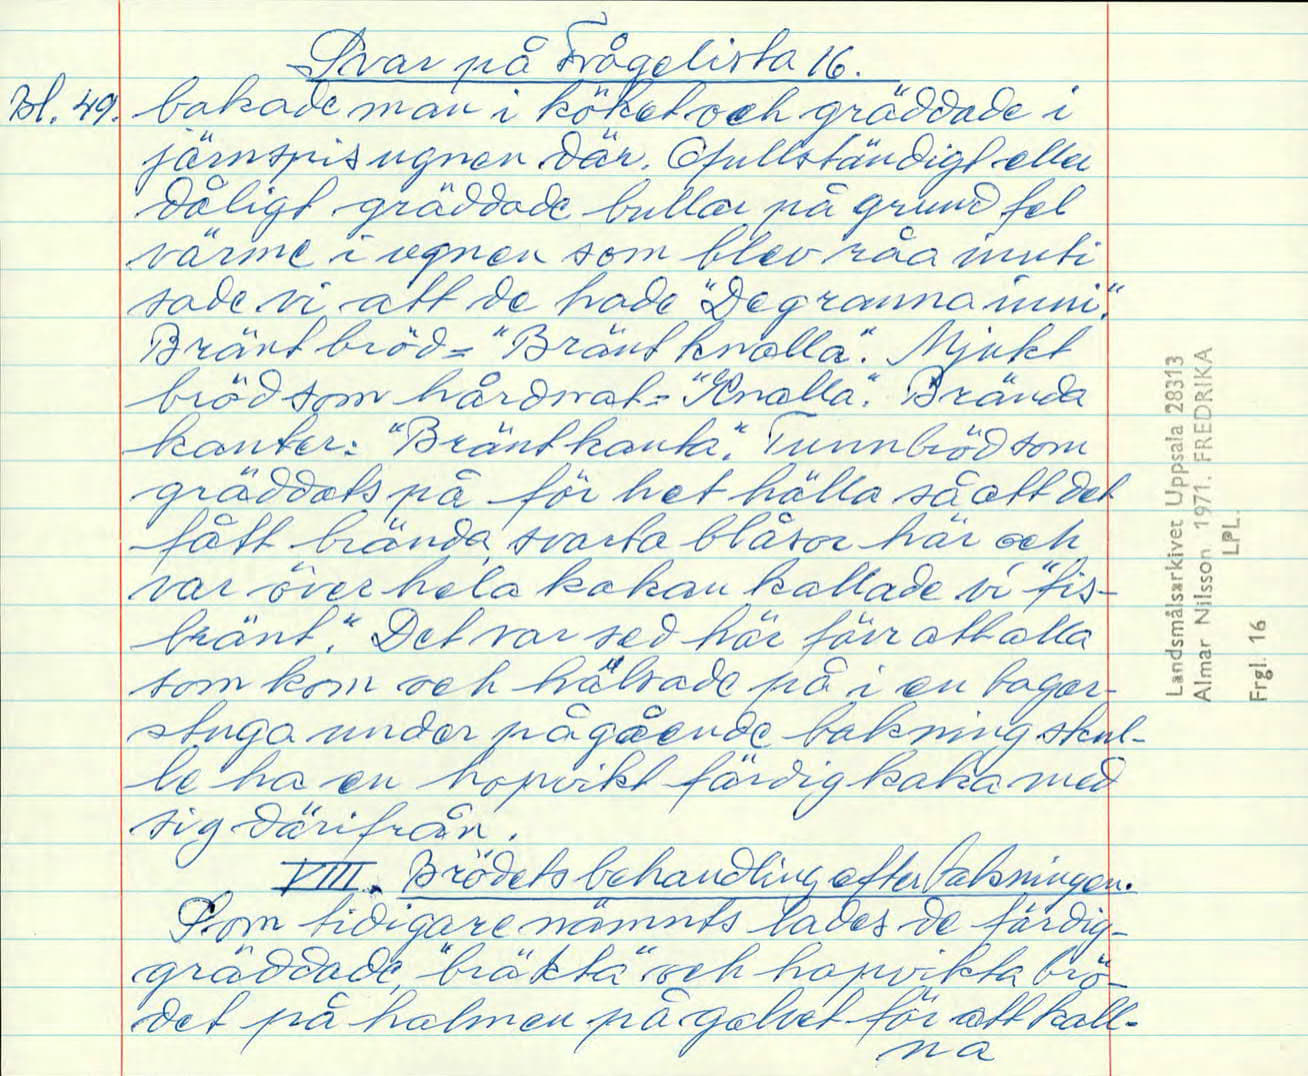 Svar på Frågelista 16.
Bl. 49. bakade man i köket och gräddade i
järnspisugnen där. Ofullständigt eller
dåligt gräddade bullar på grund fel
värme i ugnen som blev råa inuti
sade vi att de hade "Degranna inni".
Bränt bröd = "Bränt knalla". Mjukt
bröd som hårdnat = "Knalla". Brända
kanter: "Bräntkanta". Tunnbröd som
gräddats på för het hälla så att det
fått brända svarta blåsor här och
var över hela kakan kallade vi "fis-
bränt". Det var sed här förr att alla
som kom och hälsade på i en bagar-
stuga under pågående bakning skul-
le ha en hopvikt färdig kaka med
sig därifrån.
VIII. Brödets behandling efter bakningen.
Som tidigare nämnts lades de färdig-
gräddade, "bräkta" och hopvikta brö-
det på halmen på golvet för att kall-
na
Landsmålsarkivet Uppsala 28313
Almar Nilsson. 1971. FREDRIKA
LPL.
Frgl. 16